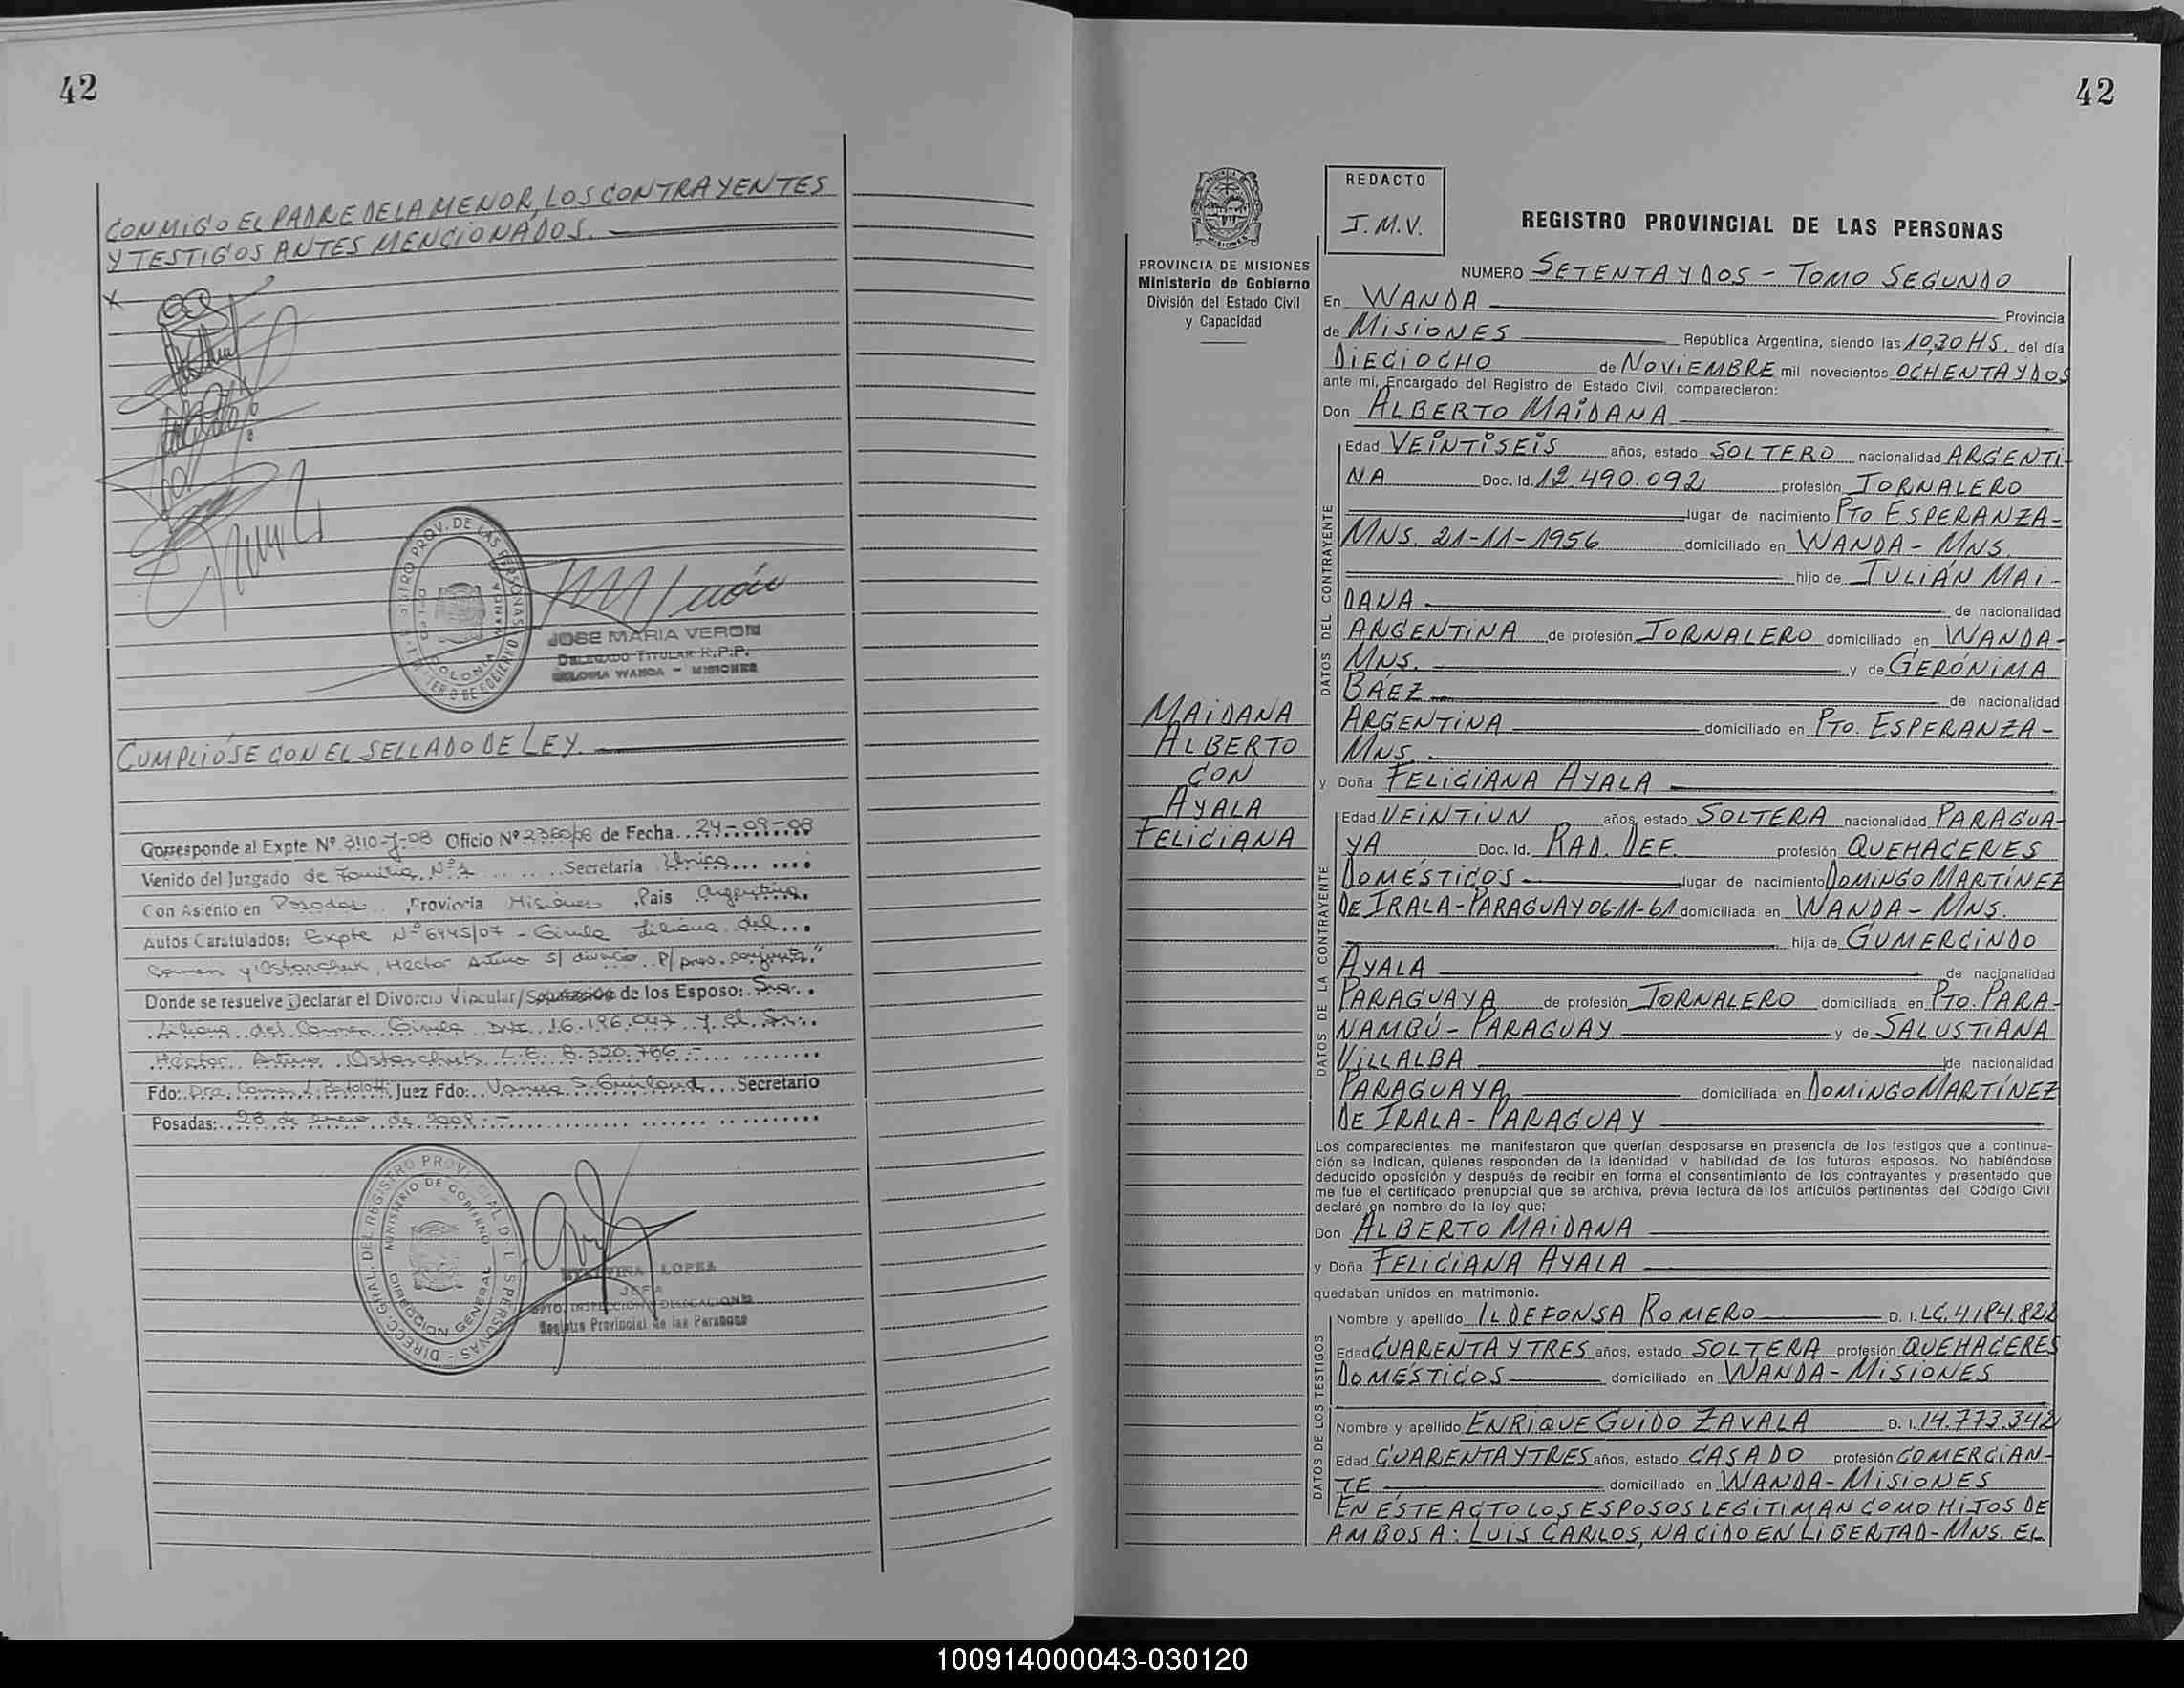 42
CONMIGO EL PADRE DE LA MENOR, LOS CONTRAYENTES
Y TESTIGOS ANTES MENCIONADOS.
X
REGISTRO PROV. DE LAS PERSONAS
COLONIA WANDA
JOSE MARIA VERON
DELEGADO TITULAR R.P.P.
COLONIA WANDA - MISIONES
CUMPLIÓSE CON EL SELLADO DE LEY.
Corresponde al Expte Nº 3110-J-08 Oficio Nº 2360/08 de Fecha 24-09-08
Venido del Juzgado de Familia Nº 1 Secretaria Unica
Con Asiento en Posadas, Provincia Misiones, Pais Argentina.
Autos Caratulados: Expte Nº 6945/07 - Girula Liliana del
Carmen y Ostarchuk, Hector Arturo s/ divorcio p/ pres. conjunta"
Donde se resuelve Declarar el Divorcio Vincular/Separación de los Esposo: Sra.
Liliana del Carmen Girula DNI 16.196.047 y el Sr.
Héctor Arturo Ostarchuk L.E. 8.320.766
Fdo: Dra. Carmen Juez Fdo: Vanesa S. Secretario
Posadas: 26 de enero de 2009.-
DIRECC. GRAL. DEL REGISTRO PROVINCIAL DE LAS PERSONAS
MINISTERIO DE GOBIERNO
DIRECCION GENERAL
LOPEZ
JEFA
DPTO. INSPECCION DELEGACIONES
Registro Provincial de las Personas
42
PROVINCIA DE MISIONES
Ministerio de Gobierno
División del Estado Civil
y Capacidad
MAIDANA
ALBERTO
CON
AYALA
FELICIANA
REDACTO
J.M.V.
REGISTRO PROVINCIAL DE LAS PERSONAS
NUMERO SETENTA Y DOS - TOMO SEGUNDO
En WANDA Provincia
de MISIONES República Argentina, siendo las 10,30 HS. del día
DIECIOCHO de NOVIEMBRE mil novecientos OCHENTA Y DOS
ante mí, Encargado del Registro del Estado Civil, comparecieron:
Don ALBERTO MAIDANA
DATOS DEL CONTRAYENTE
Edad VEINTISEIS años, estado SOLTERO nacionalidad ARGENTI-
NA Doc. Id. 12.490.092 profesión JORNALERO
lugar de nacimiento PTO ESPERANZA-
MNS. 21-11-1956 domiciliado en WANDA - MNS.
hijo de JULIÁN MAI-
DANA de nacionalidad
ARGENTINA de profesión JORNALERO domiciliado en WANDA-
MNS. y de GERÓNIMA
BÁEZ de nacionalidad
ARGENTINA domiciliado en PTO. ESPERANZA-
MNS.
y Doña FELICIANA AYALA
DATOS DE LA CONTRAYENTE
Edad VEINTIUN años, estado SOLTERA nacionalidad PARAGUA-
YA Doc. Id. RAD. DEF. profesión QUEHACERES
DOMÉSTICOS lugar de nacimiento DOMINGO MARTÍNEZ
DE IRALA-PARAGUAY 06-11-61 domiciliada en WANDA - MNS.
hija de GUMERCINDO
AYALA de nacionalidad
PARAGUAYA de profesión JORNALERO domiciliada en PTO. PARA-
NAMBÚ - PARAGUAY y de SALUSTIANA
VILLALBA de nacionalidad
PARAGUAYA domiciliada en DOMINGO MARTÍNEZ
DE IRALA - PARAGUAY
Los comparecientes me manifestaron que querían desposarse en presencia de los testigos que a continua-
ción se indican, quienes responden de la identidad y habilidad de los futuros esposos. No habiéndose
deducido oposición y después de recibir en forma el consentimiento de los contrayentes y presentado que
me fue el certificado prenupcial que se archiva, previa lectura de los artículos pertinentes del Código Civil
declaré en nombre de la ley que;
Don ALBERTO MAIDANA
y Doña FELICIANA AYALA
quedaban unidos en matrimonio.
DATOS DE LOS TESTIGOS
Nombre y apellido ILDEFONSA ROMERO D. I. LC. 4.184.822
Edad CUARENTA Y TRES años, estado SOLTERA profesión QUEHACERES
DOMÉSTICOS domiciliado en WANDA - MISIONES
Nombre y apellido ENRIQUE GUIDO ZAVALA D. I. 14.773.342
Edad CUARENTA Y TRES años, estado CASADO profesión COMERCIAN-
TE domiciliado en WANDA - MISIONES
EN ÉSTE ACTO LOS ESPOSOS LEGITIMAN COMO HIJOS DE
AMBOS A: LUIS CARLOS, NACIDO EN LIBERTAD-MNS. EL
100914000043-030120